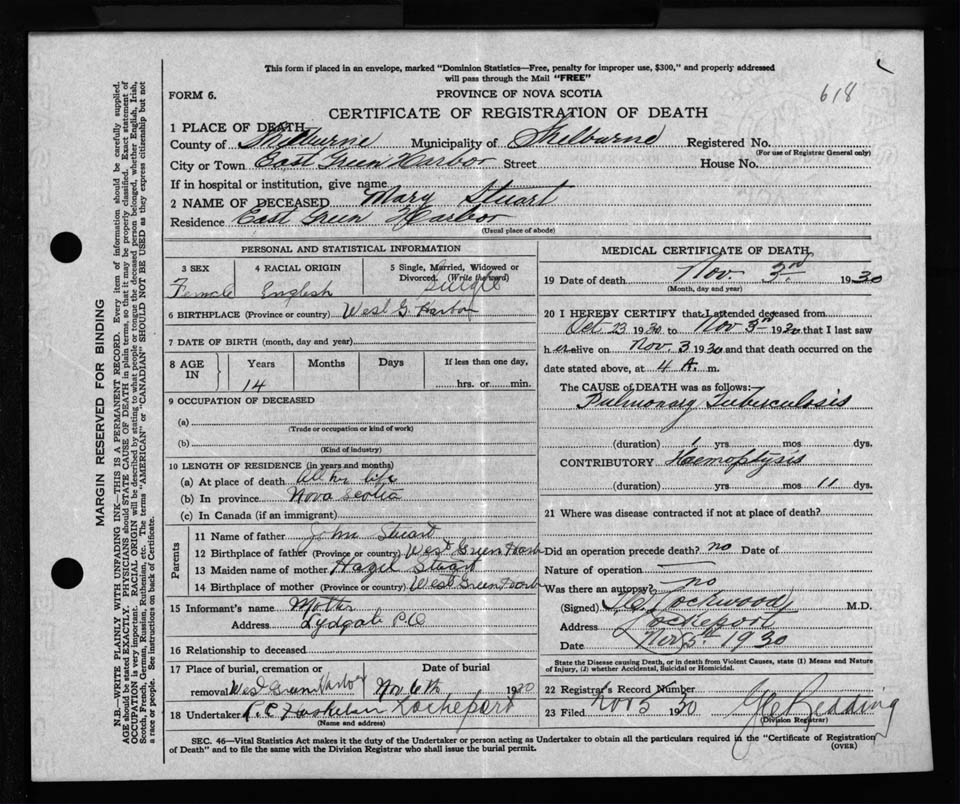 This form if placed in an envelope, marked "Dominion Statistics—Free, penalty for improper use, $300," and properly addressed
will pass through the Mail "FREE"
FORM 6.
PROVINCE OF NOVA SCOTIA
618
CERTIFICATE OF REGISTRATION OF DEATH
1 PLACE OF DEATH
County of Shelburne Municipality of Shelburne Registered No.
(For use of Registrar General only)
City or Town East Green Harbor Street House No.
If in hospital or institution, give name
2 NAME OF DECEASED Mary Stuart
Residence East Green Harbor
(Usual place of abode)
PERSONAL AND STATISTICAL INFORMATION
3 SEX 4 RACIAL ORIGIN 5 Single, Married, Widowed or
Divorced. (Write the word)
Female English Single
6 BIRTHPLACE (Province or country) West G. Harbor
7 DATE OF BIRTH (month, day and year)
8 AGE IN Years Months Days If less than one day,
14 hrs. or min.
9 OCCUPATION OF DECEASED
(a)
(Trade or occupation or kind of work)
(b)
(Kind of industry)
10 LENGTH OF RESIDENCE (in years and months)
(a) At place of death All her life
(b) In province Nova Scotia
(c) In Canada (if an immigrant)
Parents
11 Name of father John Stuart
12 Birthplace of father (Province or country) West Green Harb
13 Maiden name of mother Hazel Stuart
14 Birthplace of mother (Province or country) West Green Harb
15 Informant's name Mother
Address Lydgate P.O
16 Relationship to deceased
17 Place of burial, cremation or Date of burial
removal West Green Harbor Nov 6th, 1930
18 Undertaker Lockeport
(Name and address)
MEDICAL CERTIFICATE OF DEATH
19 Date of death Nov. 3rd 1930
(Month, day and year)
20 I HEREBY CERTIFY that I attended deceased from
Oct 23 1930 to Nov 3rd 1930 that I last saw
her alive on Nov. 3 1930 and that death occurred on the
date stated above, at 4 A. m.
The CAUSE of DEATH was as follows:
Pulmonary Tuberculosis
(duration) 1 yrs. mos dys.
CONTRIBUTORY Haemoptysis
(duration) yrs. mos 11 dys.
21 Where was disease contracted if not at place of death?
Did an operation precede death? no Date of
Nature of operation —
Was there an autopsy? no
(Signed) Lockwood M.D.
Address Lockeport
Date Nov 5th 1930
State the Disease causing Death, or in death from Violent Causes, state (1) Means and Nature
of Injury, (2) whether Accidental, Suicidal or Homicidal.
22 Registrar's Record Number
23 Filed Nov 5 30 Redding
(Division Registrar)
SEC. 46—Vital Statistics Act makes it the duty of the Undertaker or person acting as Undertaker to obtain all the particulars required in the "Certificate of Registration
of Death" and to file the same with the Division Registrar who shall issue the burial permit.
(OVER)
MARGIN RESERVED FOR BINDING
N.B.—WRITE PLAINLY WITH UNFADING INK—THIS IS A PERMANENT RECORD. Every item of information should be carefully supplied.
AGE should be stated EXACTLY. PHYSICIANS should STATE CAUSE OF DEATH in plain terms, so that it may be properly classified. Exact statement of
OCCUPATION is very important. RACIAL ORIGIN will be described by stating to what people or tongue the deceased person belonged, whether English, Irish,
Scotch, French, German, Russian, Ruthenian, etc. The terms "AMERICAN" or "CANADIAN" SHOULD NOT BE USED as they express citizenship but not
a race or people. See instructions on back of Certificate.